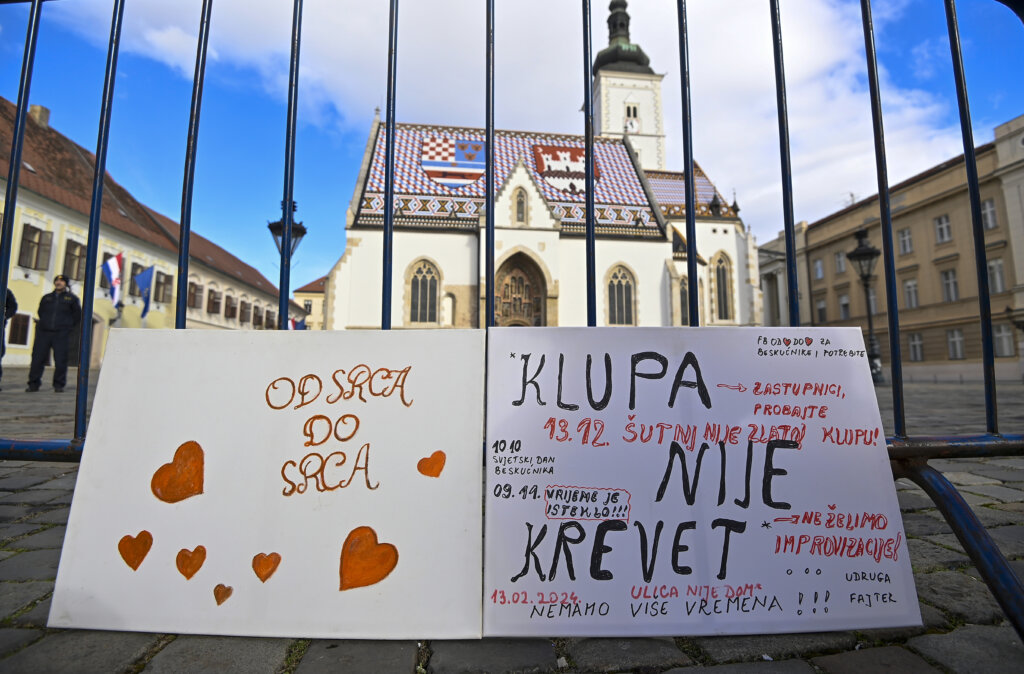 OD SRCA
DO
SRCA
FB OD♥DO♥ ZA
BESKUĆNIKE I POTREBITE
*KLUPA
→ ZASTUPNICI,
PROBAJTE
KLUPU!
13.12. ŠUTNJ NIJE ZLATO!
10.10
SVJETSKI DAN
BESKUĆNIKA
NIJE
09.11. VRIJEME JE
ISTEKLO!!!
KREVET *
→ NE ŽELIMO
IMPROVIZACIJE!
13.02.2024.
ULICA NIJE DOM*
NEMAMO VISE VREMENA !!!
UDRUGA
FAJTER